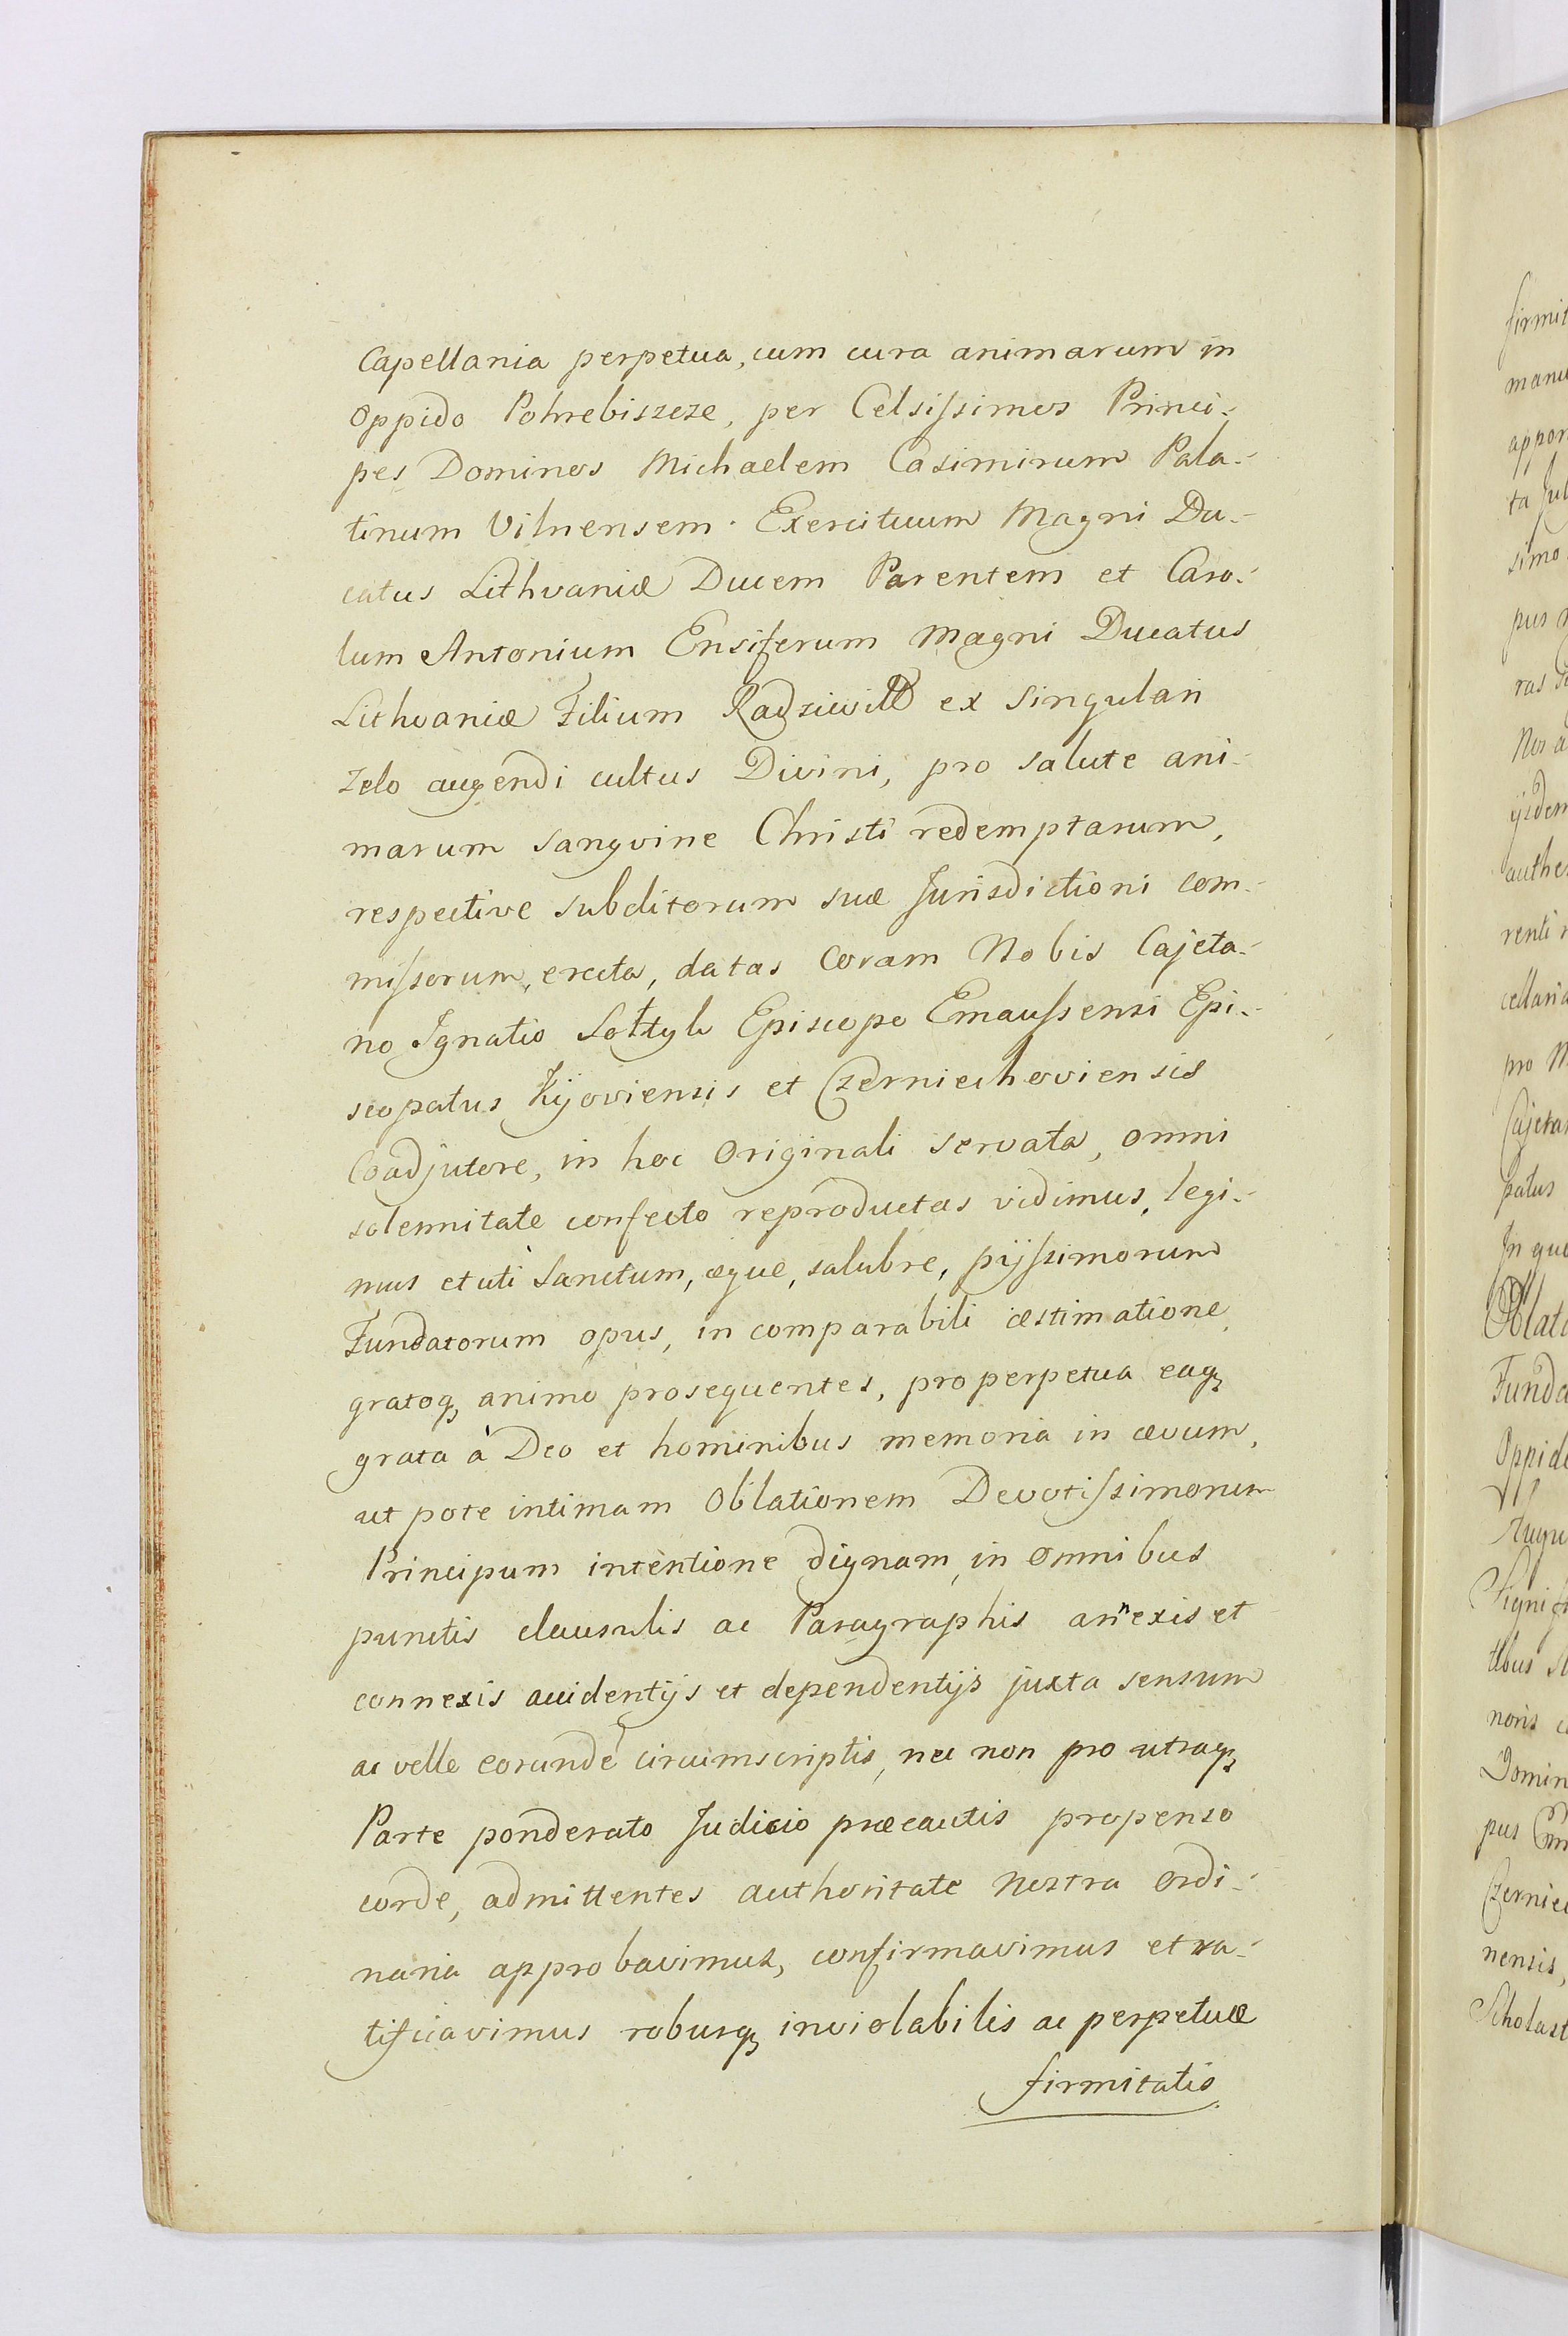 Capellania perpetua, cum cura animarum in
Oppido Pohrebiszcze, per Celsiſsimos Princi-
pes Dominos Michaelem Casimirum Pala-
tinum Vilnensem. Exercituum Magni Du-
catus Lithvaniæ Ducem Parentem et Caro-
lum Antonium Ensiferum Magni Ducatus
Lithvaniæ Filium Radziwiłł ex singulari
zelo augendi cultus Divini, pro salute ani-
marum sangvine Christi redemptarum,
respective subditorum suæ Jurisdictioni com-
miſsorum, erecta, datas Coram Nobis Cajeta-
no Ignatio Sołtyk Episcopo Emauſsensi Epi-
scopatus Kijoviensis et Czerniechoviensis
Coadjutore, in hoc Originali servata, omni
solennitate confecto reproductas vidimus, legi-
mus et uti Sanctum, æque, salubre, pijſsimorum
Fundatorum opus, in comparabili æstimatione
gratoq₃ animo prosequentes, pro perpetua eaq₃
grata à Deo et hominibus memoria in ævum,
ut pote intimam Oblationem Devotiſsimorum
Principum intentione dignam, in omnibus
punctis clausulis ac Paragraphis annexis et
connexis accidentijs et dependentijs juxta sensum
ac velle eorundē circumscriptis, nec non pro utraq₃
Parte ponderato Judicio præcautis propenso
corde, admittentes authoritate nostra ordi-
naria approbavimus, confirmavimus et ra-
tificavimus roburq₃ inviolabilis ac perpetuæ
firmitatis
firmit
manu
appor
simo
pus
ras
Nos a
ijsdem
authe
renti
cellaria
pro M
Cajeta
patus
In quo
Oblata
Funda
Oppido
Augu
tibus
noris
Domin
pus
Czernie
nensis,
Scholast